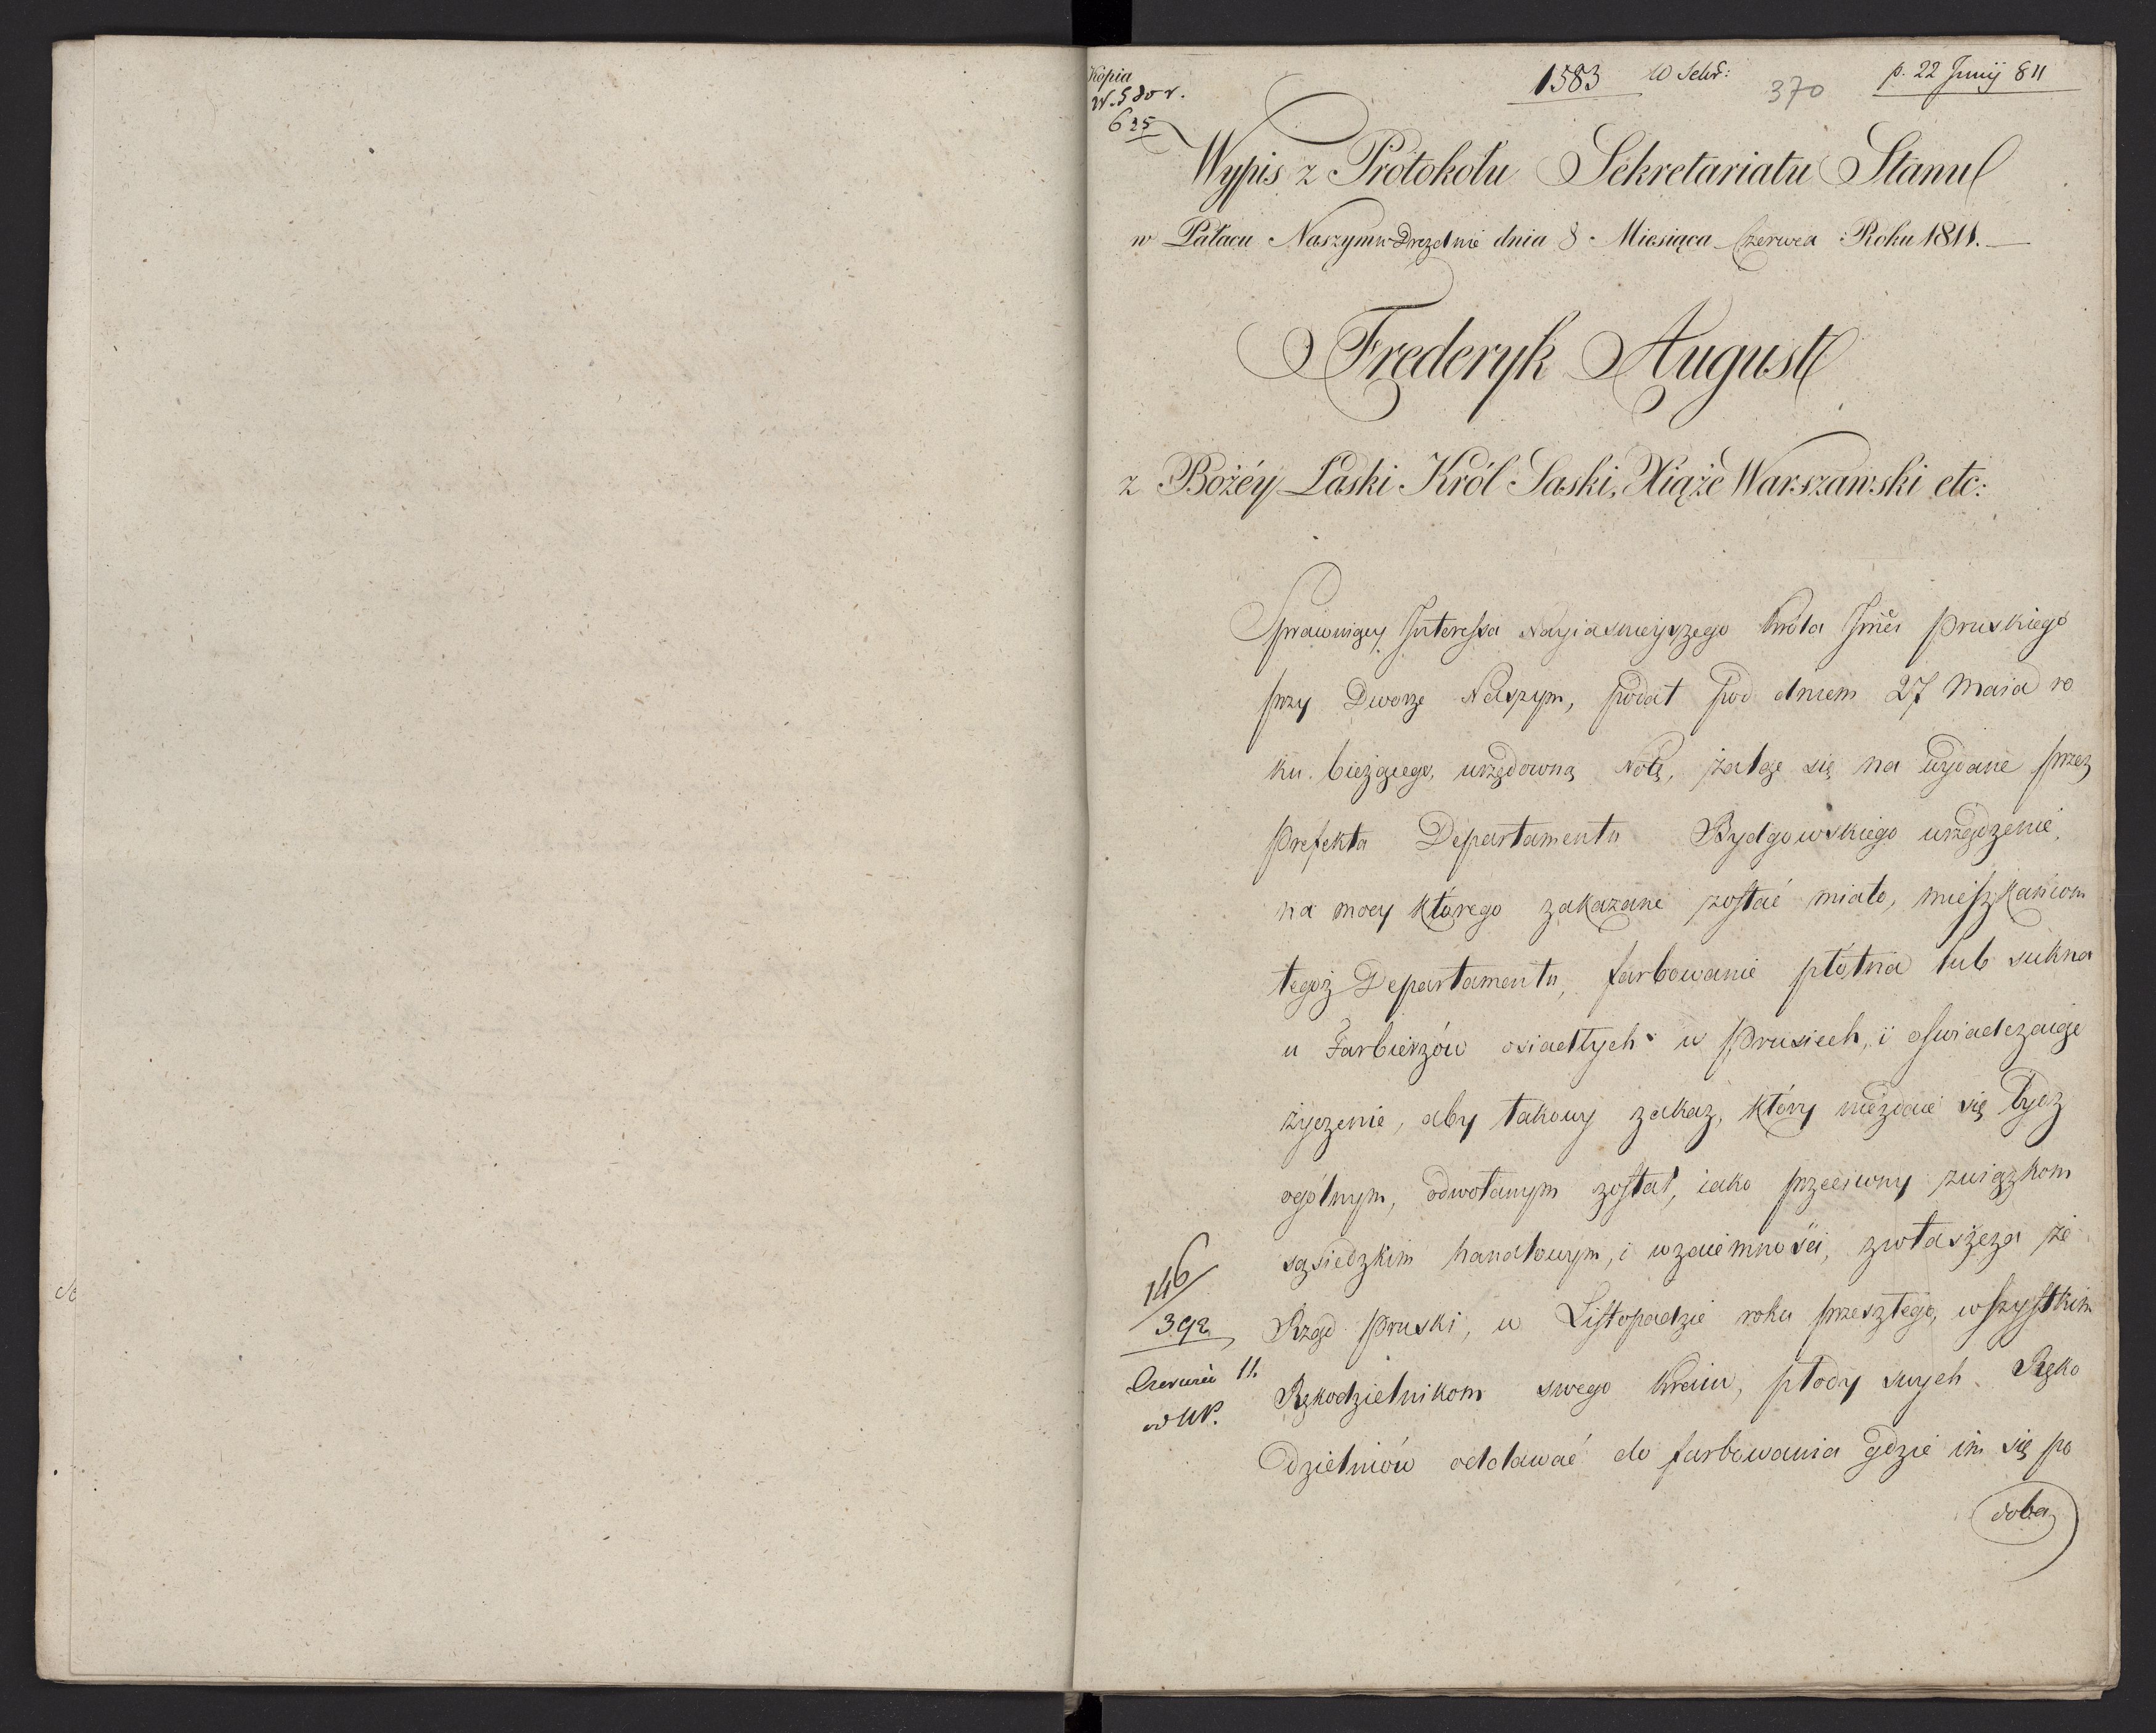 Kopia
635
1583
370
p. 22 Junij 811
Wypis z Protokołu Sekretariatu Stanu
w Pałacu Naszym w Dreznie dnia 8 Miesiąca Czerwca Roku 1811.
Frederyk August
z Bożéy Łaski Król Saski, Xiąże Warszawski etc:
Sprawuiący Interessa Nayiasnieyszego Króla Jmci Pruskiego
przy Dworze Naszym, podał pod dniem 27 Maia ro
ku bieżącego, urzędowną Notę, żaląc się na wydane przez
Prefekta Departamentu Bydgowskiego urządzenie,
na mocy którego zakazane zostać miało, mieszkańcom
tegoż Departamentu, farbowanie płótna lub sukna
u Farbierzów osiadłych w Prusiech, i oświadczaiąc
życzenie, aby takowy zakaz, który niezdaie się bydz
ogólnym, odwołanym został, iako przeciwny związkom
sąsiedzkim handlowym, i wzaiemności, zwłaszcza że
Rząd Pruski, w Listopadzie roku przeszłego, wszystkim
Rękodzielnikom swego kraiu, płody swych Ręko
dzielniów oddawać do farbowania gdzie im się po
doba
146
392
Czerwca 11.